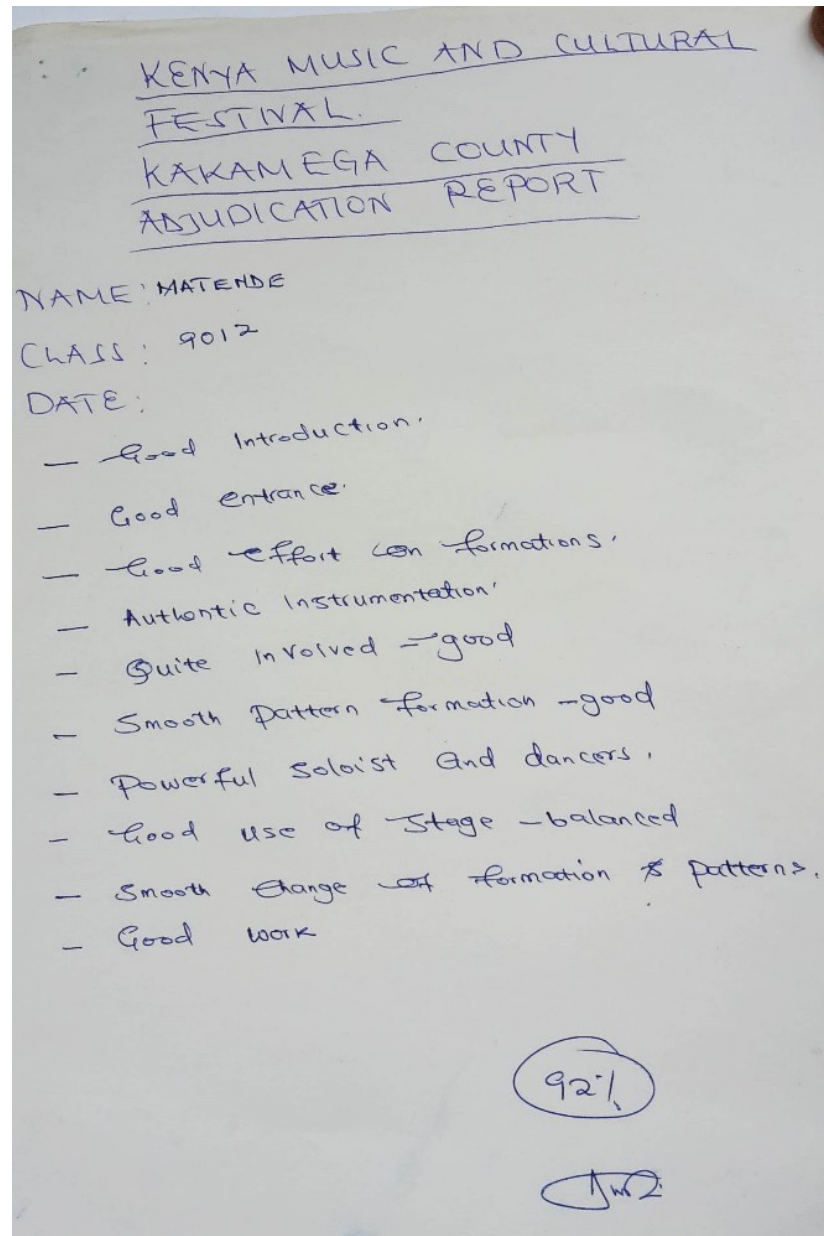 KENYA MUSIC AND CULTURAL
FESTIVAL.
KAKAMEGA COUNTY
ADJUDICATION REPORT
NAME: MATENDE
CLASS: 9012
DATE:
— Good Introduction.
— Good entrance.
— Good effort on formations.
— Authentic Instrumentation.
— Quite involved – good
— Smooth pattern formation – good
— Powerful soloist and dancers.
— Good use of stage – balanced
— Smooth change of formation & patterns.
— Good work
92%